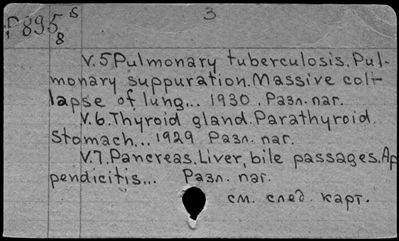 3
895 S
8
V.5 Pulmonary tuberculosis. Pul-
monary suppuration. Massive col-
lapse of lung... 1930. Разл. паг.
V.6. Thyroid gland. Parathyroid.
Stomach... 1929 Разл. паг.
V.7. Pancreas. Liver, bile passages. Ap
pendicitis... Разл. паг.
см. след. карт.